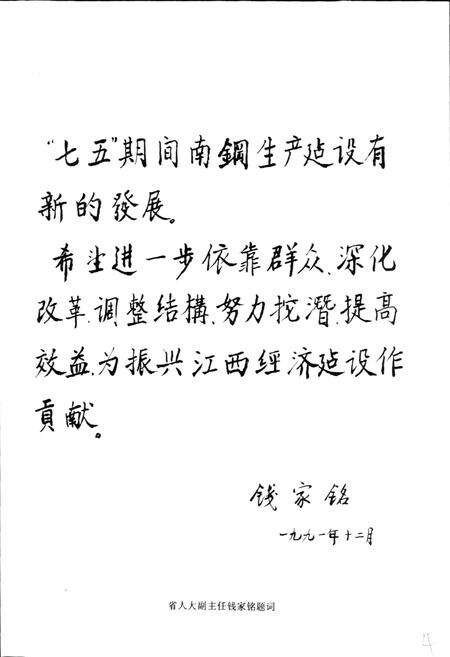 “七五”期间南鋼生产建设有
新的發展。
希望进一步依靠群众、深化
改革、调整结構、努力挖潛、提高
效益、为振兴江西經济建设作
貢献。
钱家铭
一九九一年十二月
省人大副主任钱家铭题词